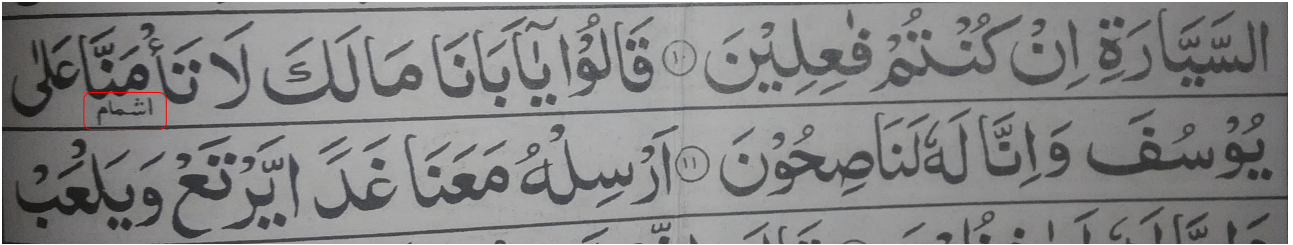 السَّيَّارَةِ اِنْ كُنْتُمْ فٰعِلِيْنَ ۝١٠ قَالُوْا يٰٓاَبَانَا مَا لَكَ لَا تَأْمَنَّا عَلٰى
اشمام
يُوْسُفَ وَ اِنَّا لَهٗ لَنَاصِحُوْنَ ۝١١ اَرْسِلْهُ مَعَنَا غَدًا يَّرْتَعْ وَ يَلْعَبْ